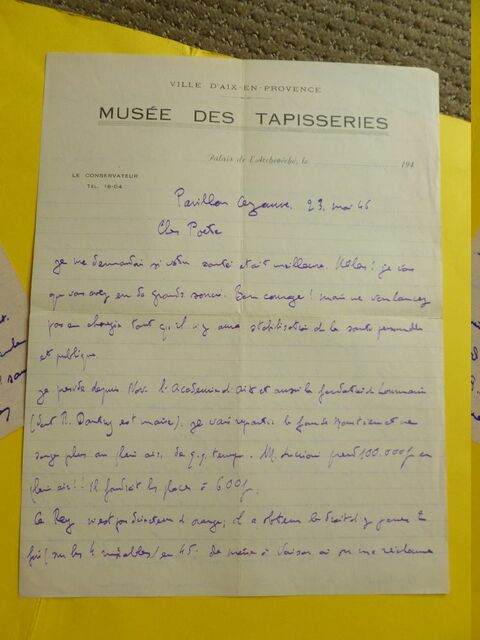 VILLE D'AIX-EN-PROVENCE
MUSÉE DES TAPISSERIES
Palais de l'Archevêché, le 194
LE CONSERVATEUR
TEL. 18-04
Pavillon Cézanne, 23 mai 46
Cher Poète
je me demandai si votre santé était meilleure. Hélas! je vois
que vous avez eu de grands soucis. Bon courage! mais ne vous lancez
pas en tant qu'il n'y aura stabilisation de la santé personnelle
et publique
je préside depuis Nov. l'Academie d'Aix et aussi la fondation de Lourmarin
(dont R. Dautry est maire). je vais repartir le et ne
songe plus au plein air, de q.q. temps. M. perd 100.000f en
plein air!! Il faudrait les places à 600f.
Le Rey n'est pas directeur d'orange, il a obtenu le droit d'y jouer 2
fois (sur les 4 ) en 45. de même à Vaison où on me réclame